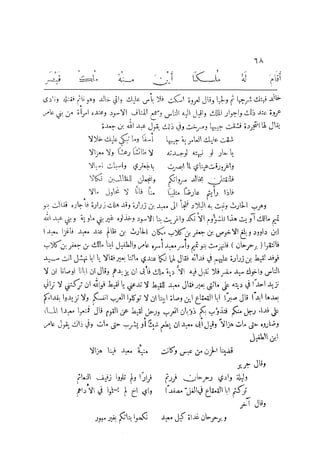 ٦٨
خالد فيتك شرجوا ثم ولجوا وقال لعروة اسكت فلا بأس عليك وأتى خالد وهو نائم فقتله ونادى
عروة عند ذلك واجوار الملك واقبل اليه الناس وسمع الهتاف الاسود وعنده امرأة من بني عامر
يقال لها المتجردة فشقت جيبها وصرخت وفي ذلك يقول عبد الله بن جعدة
شقت عليك العامرية جيبها اسفا وما تبكي عليك ضلالا
يا حار لو نبهته لوجدته لا طائشا رعشا ولا معزالا
واغرورقت عيناي لما اخبرت بالجعفري واسبلت اسبالا
فلنقتلن بخالد سرواتكم ولنجعلن للظالمين نكالا
فاذا رأيتم عارضا متلببا منا فانا لا نحاول مالا
وهرب الحارث ونبت به البلاد فلجأ الى معبد بن زرارة وقد هلك زرارة فأجاره فقالت بنو
تميم مالك آويت هذا المشؤوم الانكد واغريت بنا الاسود وخذلوه غير بني ماوية وبني عبد الله
ابن دارم وبلغ الاحوص بن جعفر بن كلاب مكان الحارث بن ظالم عند معبد فاغزا معبدا
فالتقوا برحرحان فانهزمت بنو تميم وأسر معبد أسره عامر والطفيل ابنا مالك بن جعفر بن كلاب
فوفد لقيط بن زرارة عليهم في فدائه فقال لهما لكما عندي مائتا بعير فقالا يا ابا نهشل انت سيد
الناس واخوك سيد مضر فلا نقبل فيه الا دية ملك فأبى ان يزيدهم وقال ان ابانا اوصانا ان لا
نزيد احدا في ديته على مائتي بعير فقال معبد للقيط لا تدعني يا لقيط فوالله ان تركتني لا تراني
بعدها ابدا قال صبرا ابا القعقاع اين وصاة ابينا ان لا توكلوا العرب انفسكم ولا تزيدوا بفدائكم
على فداء رجل منكم فتذؤب بكم ذؤبان العرب ورحل لقيط عن القوم قال فمنعوا معبدا الماء
وضاروه حتى مات هزالا وقيل ابى معبد ان يطعم شيئا أو يشرب حتى مات وفي ذلك يقول عامر
ابن الطفيل
قضينا الحزن من عبس وكانت منية معبد فينا هزالا
وقال جرير
وليلة وادي رحرحان فررتم فرارا ولم تلووا زفيف النعائم
تركتم ابا القعقاع في الغل مصفدا واي اخ لم تسلموا في الاداهم
وقال آخر
وبرحرحان غداة كبل معبد نكحوا بناتكم بغير مهور